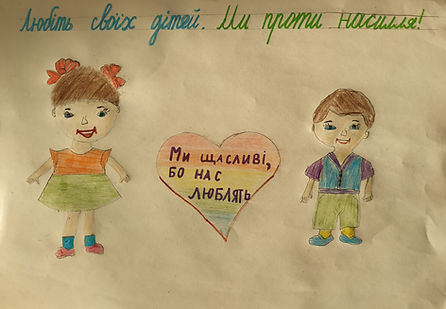 Любіть своїх дітей. Ми проти насилля!
Ми щасливі,
бо нас
люблять